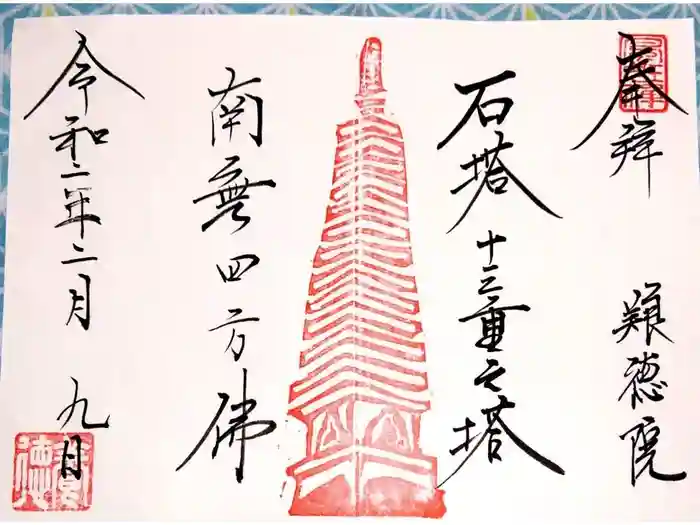 奉拝
難徳院
石塔十三重之塔
南無四方佛
令和二年二月九日